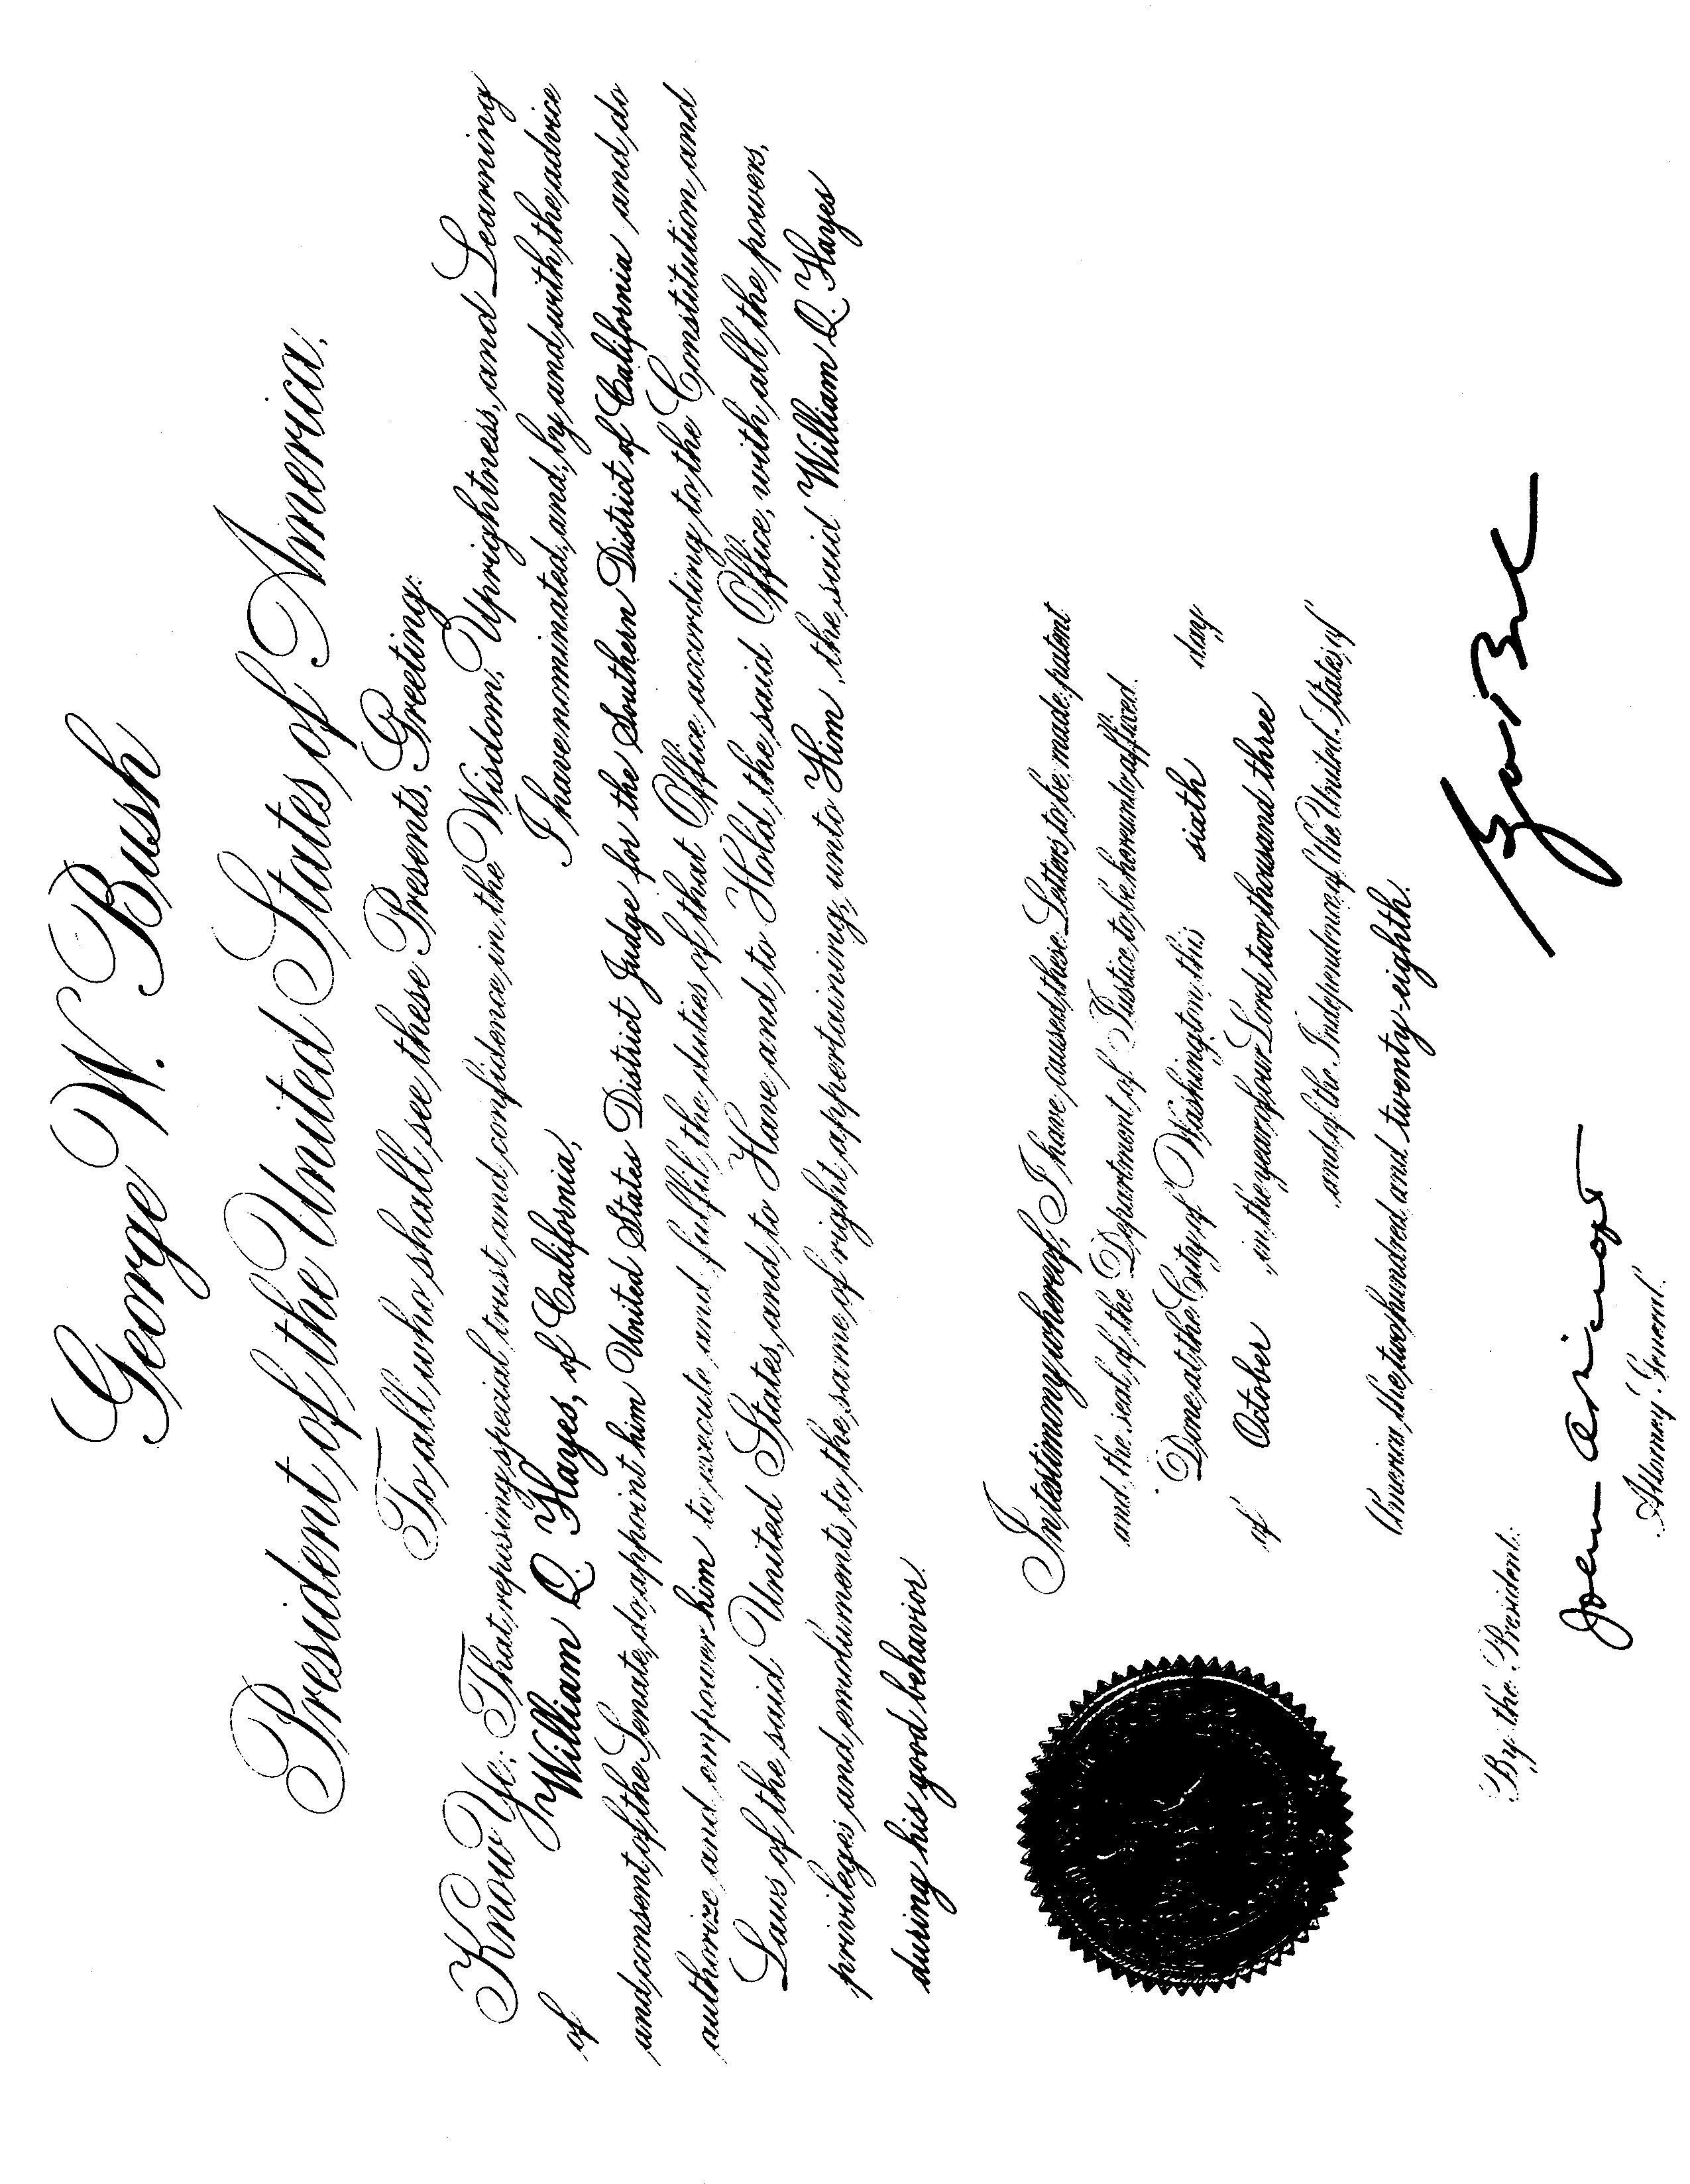 George W. Bush
President of the United States of America,
To all who shall see these Presents, Greeting:
Know Ye: That reposing special trust and confidence in the Wisdom, Uprightness, and Learning
of William Q. Hayes, of California, I have nominated, and, by and with the advice
and consent of the Senate, do appoint him United States District Judge for the Southern District of California and do
authorize and empower him to execute and fulfil the duties of that Office according to the Constitution and
Laws of the said United States, and to Have and to Hold the said Office, with all the powers,
privileges and emoluments to the same of right appertaining, unto Him, the said William Q. Hayes
during his good behavior.
In testimony whereof, I have caused these Letters to be made patent
and the seal of the Department of Justice to be hereunto affixed.
Done at the City of Washington this sixth day
of October in the year of our Lord two thousand three
and of the Independence of the United States of
America the two hundred and twenty-eighth.
By the President:
John Ashcroft
Attorney General.